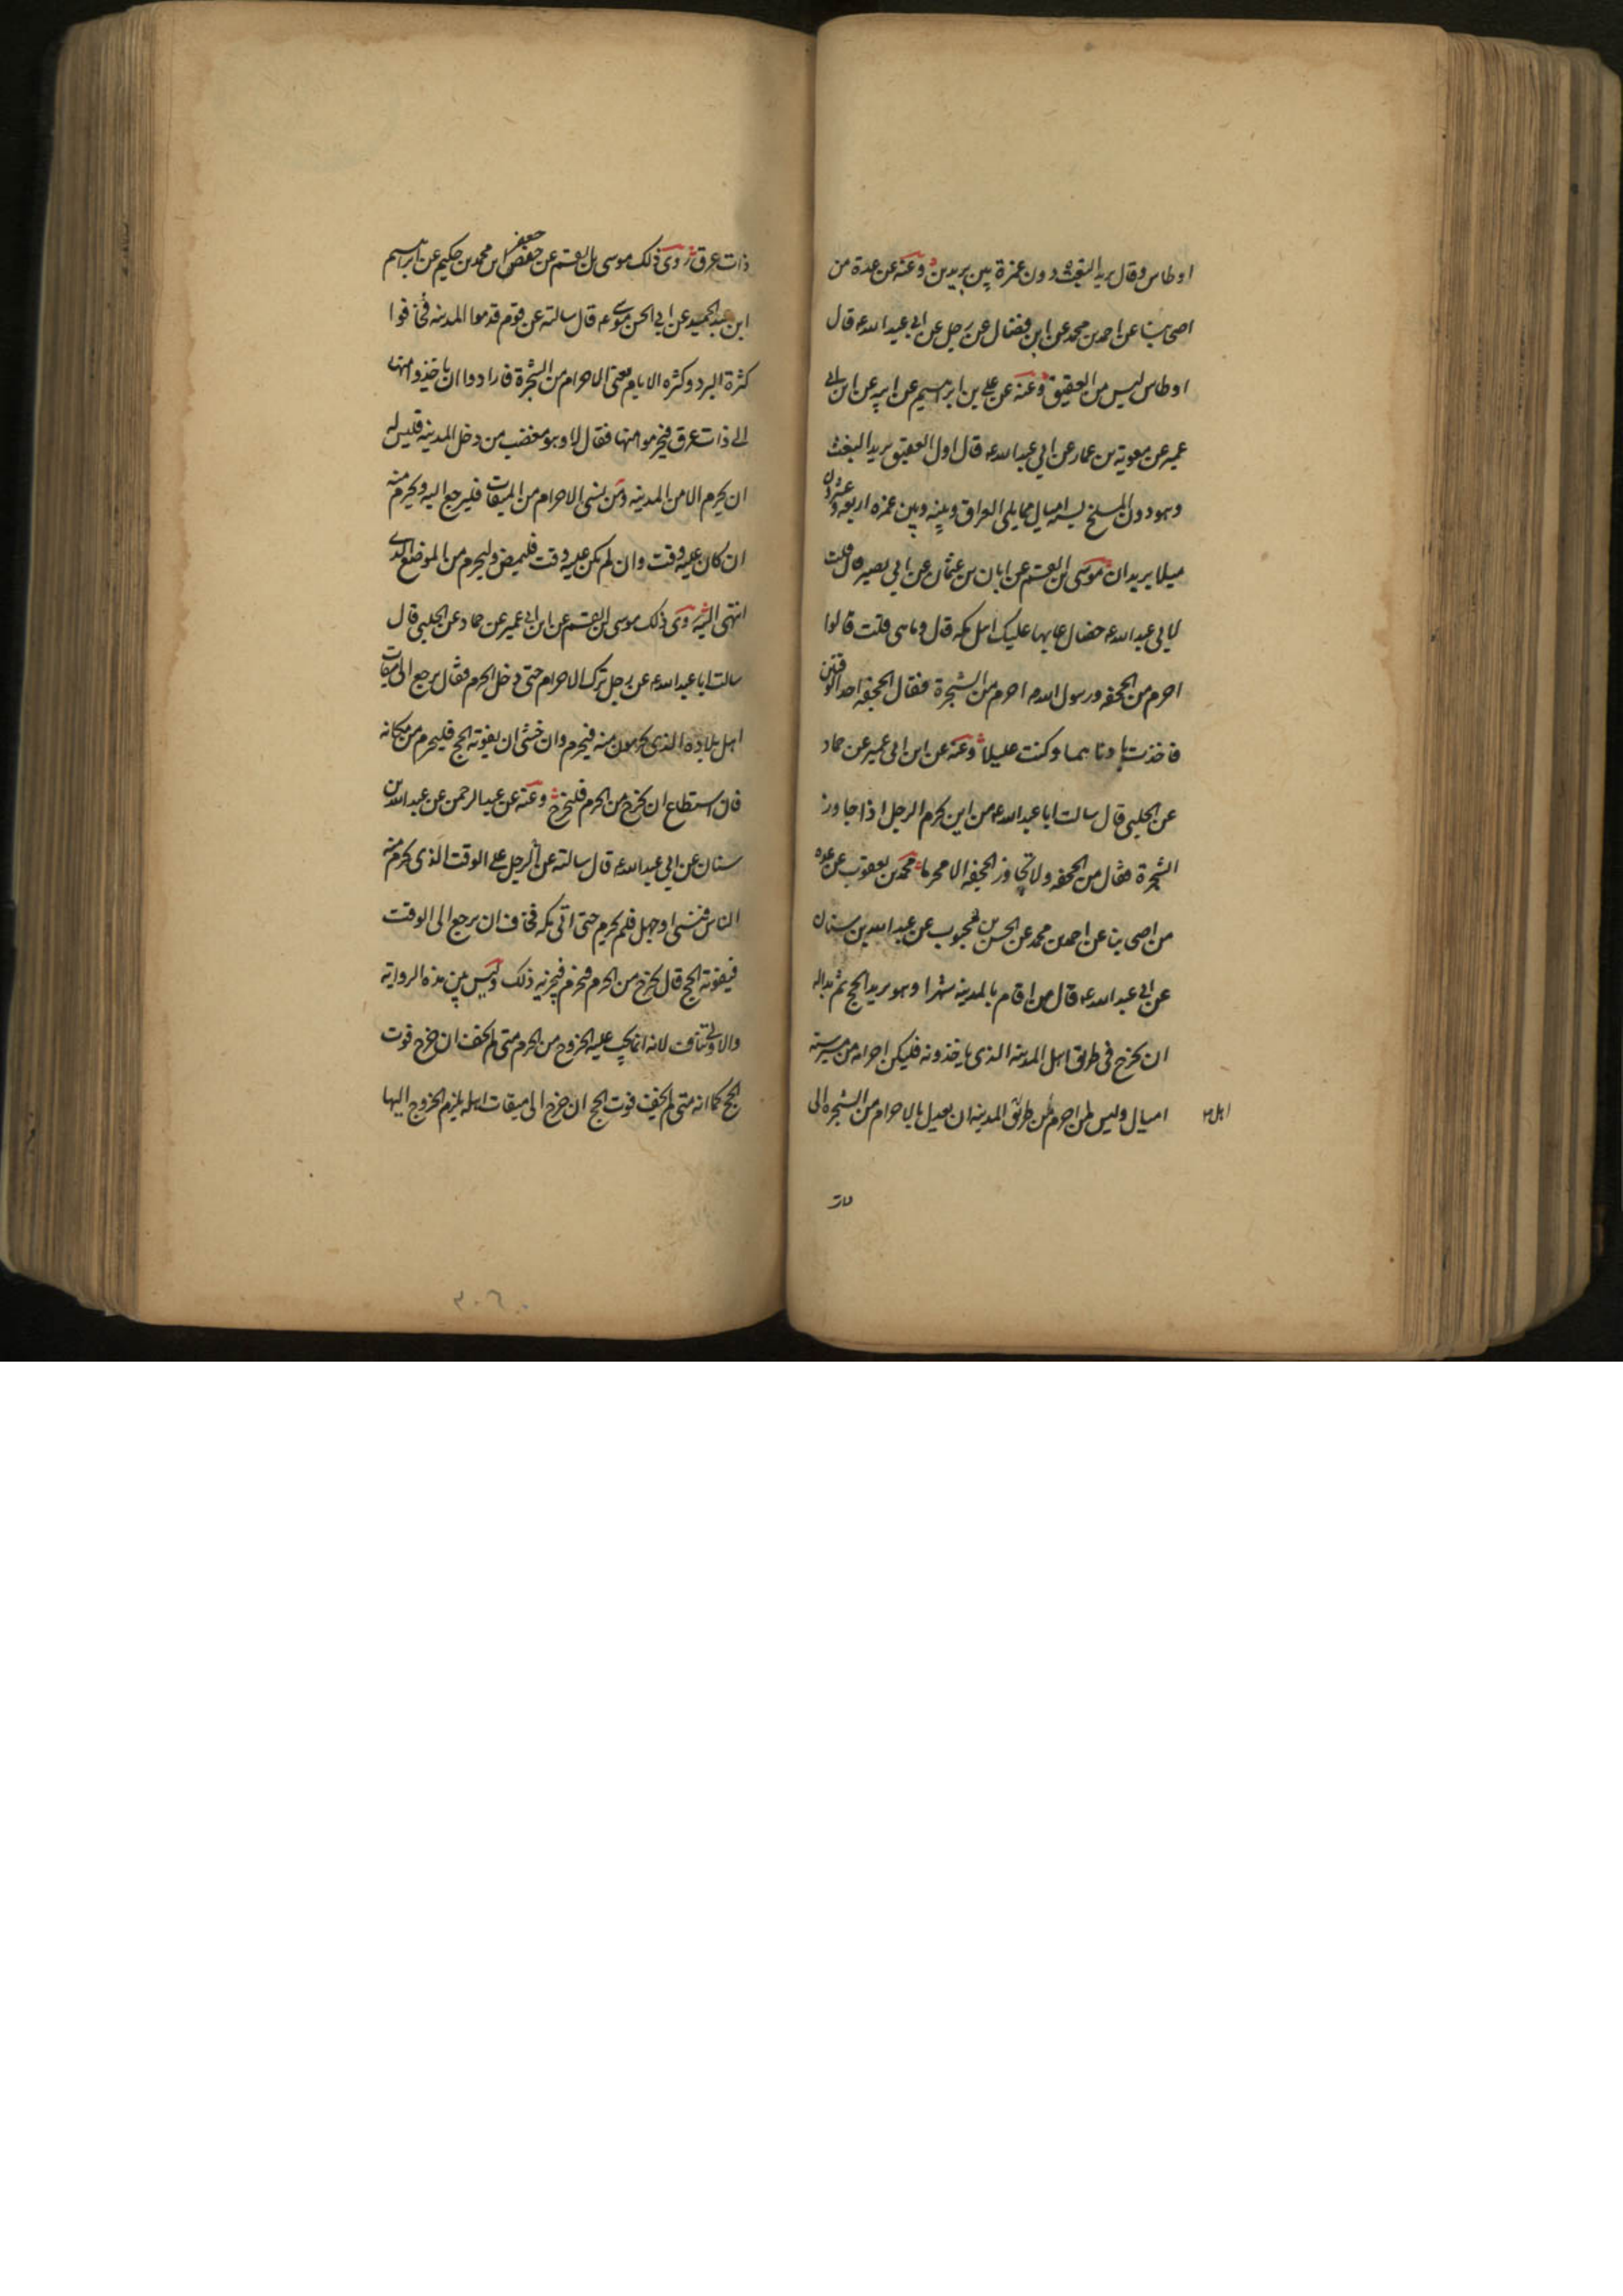 اوطاس وقال بريد البغث دون غمزة ببريدين وعنه عن عدة من
اصحابنا عن احمد بن محمد عن ابن فضال عن رجل عن ابي عبد الله ع قال
اوطاس ليس من العقيق وعنه عن علي بن ابرهيم عن ابيه عن ابن ابي
عمير عن معوية بن عمار عن ابي عبد الله ع قال اول العقيق بريد البغث
وهو دون المسلخ بستة اميال مما يلي العراق وبينه وبين غمزه اربعة وعشرون
ميلا بريدان موسى بن القسم عن ابان بن عثمان عن ابي بصير قال قلت
لابي عبد الله ع خصال عابها عليك اهل مكه قال وما هي قلت قالوا
احرم من الجحفه ورسول الله ص احرم من الشجرة فقال الجحفه احد الوقتين
فاخذت بادناهما وكنت عليلا وعنه عن ابن ابي عمير عن حماد
عن الحلبي قال سالت ابا عبد الله ع من اين يحرم الرجل اذا جاوز
الشجرة فقال من الجحفه ولا تجاوز الجحفه الا محرما محمد بن يعقوب عن عده
من اصحابنا عن احمد بن محمد عن الحسن بن محبوب عن عبد الله بن سنان
عن ابي عبد الله ع قال من اقام بالمدينه شهرا وهو يريد الحج ثم بدا له
ان يخرج في طريق اهل المدينه الذي ياخذونه فليكن احرامه من مسيرة ستة
اميال وليس لمن احرم من طريق المدينه ان يعدل بالاحرام من الشجره الى
اهل
ذات
ذات عرق روى ذلك موسى بن القسم عن جعفر بن محمد بن حكيم عن ابراهيم
ابن عبد الحميد عن ابي الحسن موسى ع قال سالته عن قوم قدموا المدينه فخافوا
كثرة البرد وكثره الايام يعني الاحرام من الشجرة فارادوا ان ياخذوا منها
الى ذات عرق فيحرموا منها فقال لا وهو مغضب من دخل المدينه فليس له
ان يحرم الا من المدينه ومن نسي الاحرام من الميقات فليرجع اليه ويحرم منه
ان كان عليه وقت وان لم يكن عليه وقت فليمض وليحرم من الموضع الذي
انتهى اليه روى ذلك موسى بن القسم عن ابن ابي عمير عن حماد عن الحلبي قال
سالت ابا عبد الله ع عن رجل ترك الاحرام حتى دخل الحرم فقال يرجع الى ميقات
اهل بلاده الذي يحرمون منه فيحرم وان خشي ان يفوته الحج فليحرم من مكانه
فان استطاع ان يخرج من الحرم فليخرج وعنه عن عبد الرحمن عن عبد الله بن
سنان عن ابي عبد الله ع قال سالته عن الرجل على الوقت الذي يحرم منه
الناس فنسي او جهل فلم يحرم حتى اتى مكه فخاف ان يرجع الى الوقت
فيفوته الحج قال يخرج من الحرم فيحرم فيجزيه ذلك وليس بين هذه الرواية
والاولى تناف لانه انما يجب عليه الخروج من الحرم متى لم يخف ان خرج فوت
الحج كما انه متى لم يخف فوت الحج ان خرج الى ميقات اهله يلزم الخروج اليها